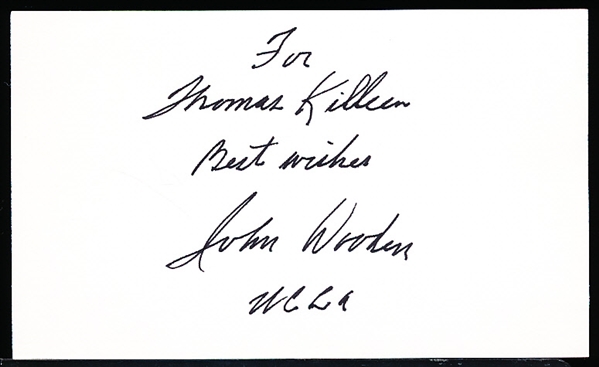 For
Thomas Killeen
Best wishes
John Wooden
UCLA